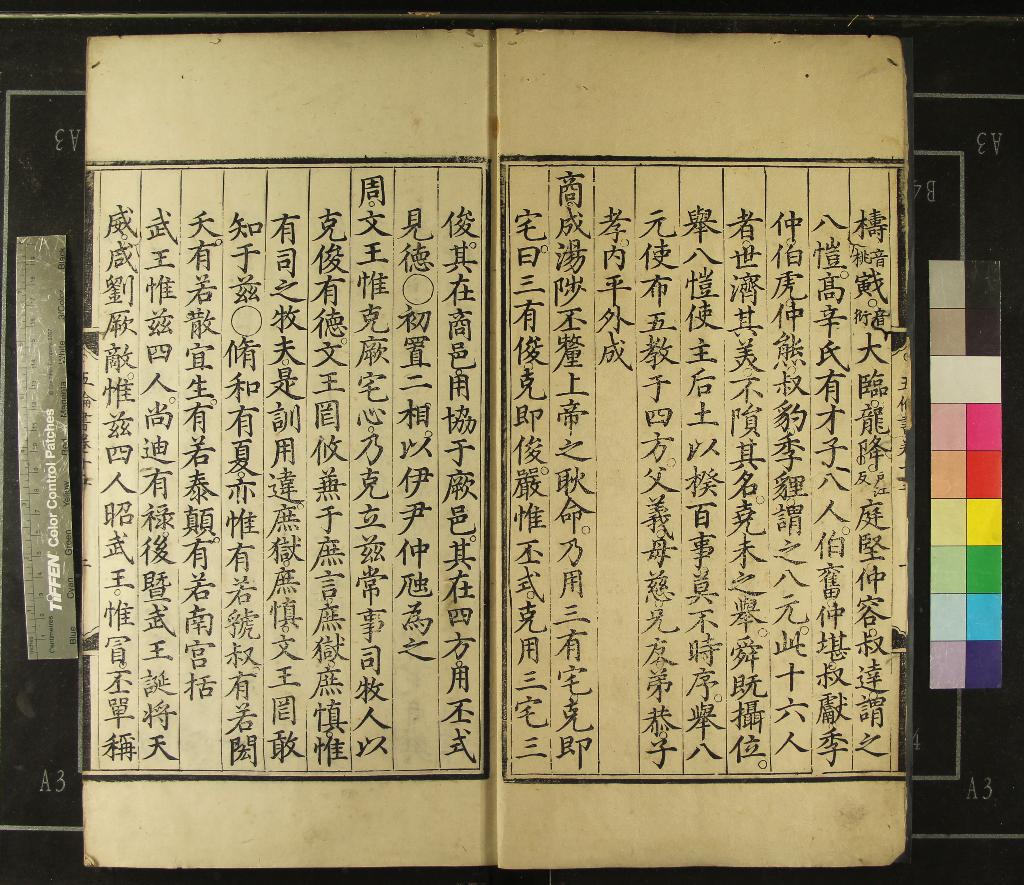 檮音桃戭音衍大臨龍降户江反庭堅仲容叔達謂之
八愷高辛氏有才子八人伯奮仲堪叔獻季
仲伯虎仲熊叔豹季貍謂之八元此十六人
者世濟其美不隕其名堯未之舉舜既攝位
舉八愷使主后土以揆百事莫不時序舉八
元使布五教于四方父義母慈兄友弟恭子
孝内平外成
商成湯陟丕釐上帝之耿命乃用三有宅克即
宅曰三有俊克即俊嚴惟丕式克用三宅三
俊其在商邑用協于厥邑其在四方用丕式
見德○初置二相以伊尹仲虺為之
周文王惟克厥宅心乃克立兹常事司牧人以
克俊有德文王罔攸兼于庶言庶獄庶慎惟
有司之牧夫是訓用違庶獄庶慎文王罔敢
知于兹○脩和有夏亦惟有若虢叔有若閎
夭有若散宜生有若泰顛有若南宫括
武王惟兹四人尚迪有禄後暨武王誕将天
威咸劉厥敵惟兹四人昭武王惟冒丕單稱
TIFFEN Color Control Patches
A3
A3
A3
A3
B4